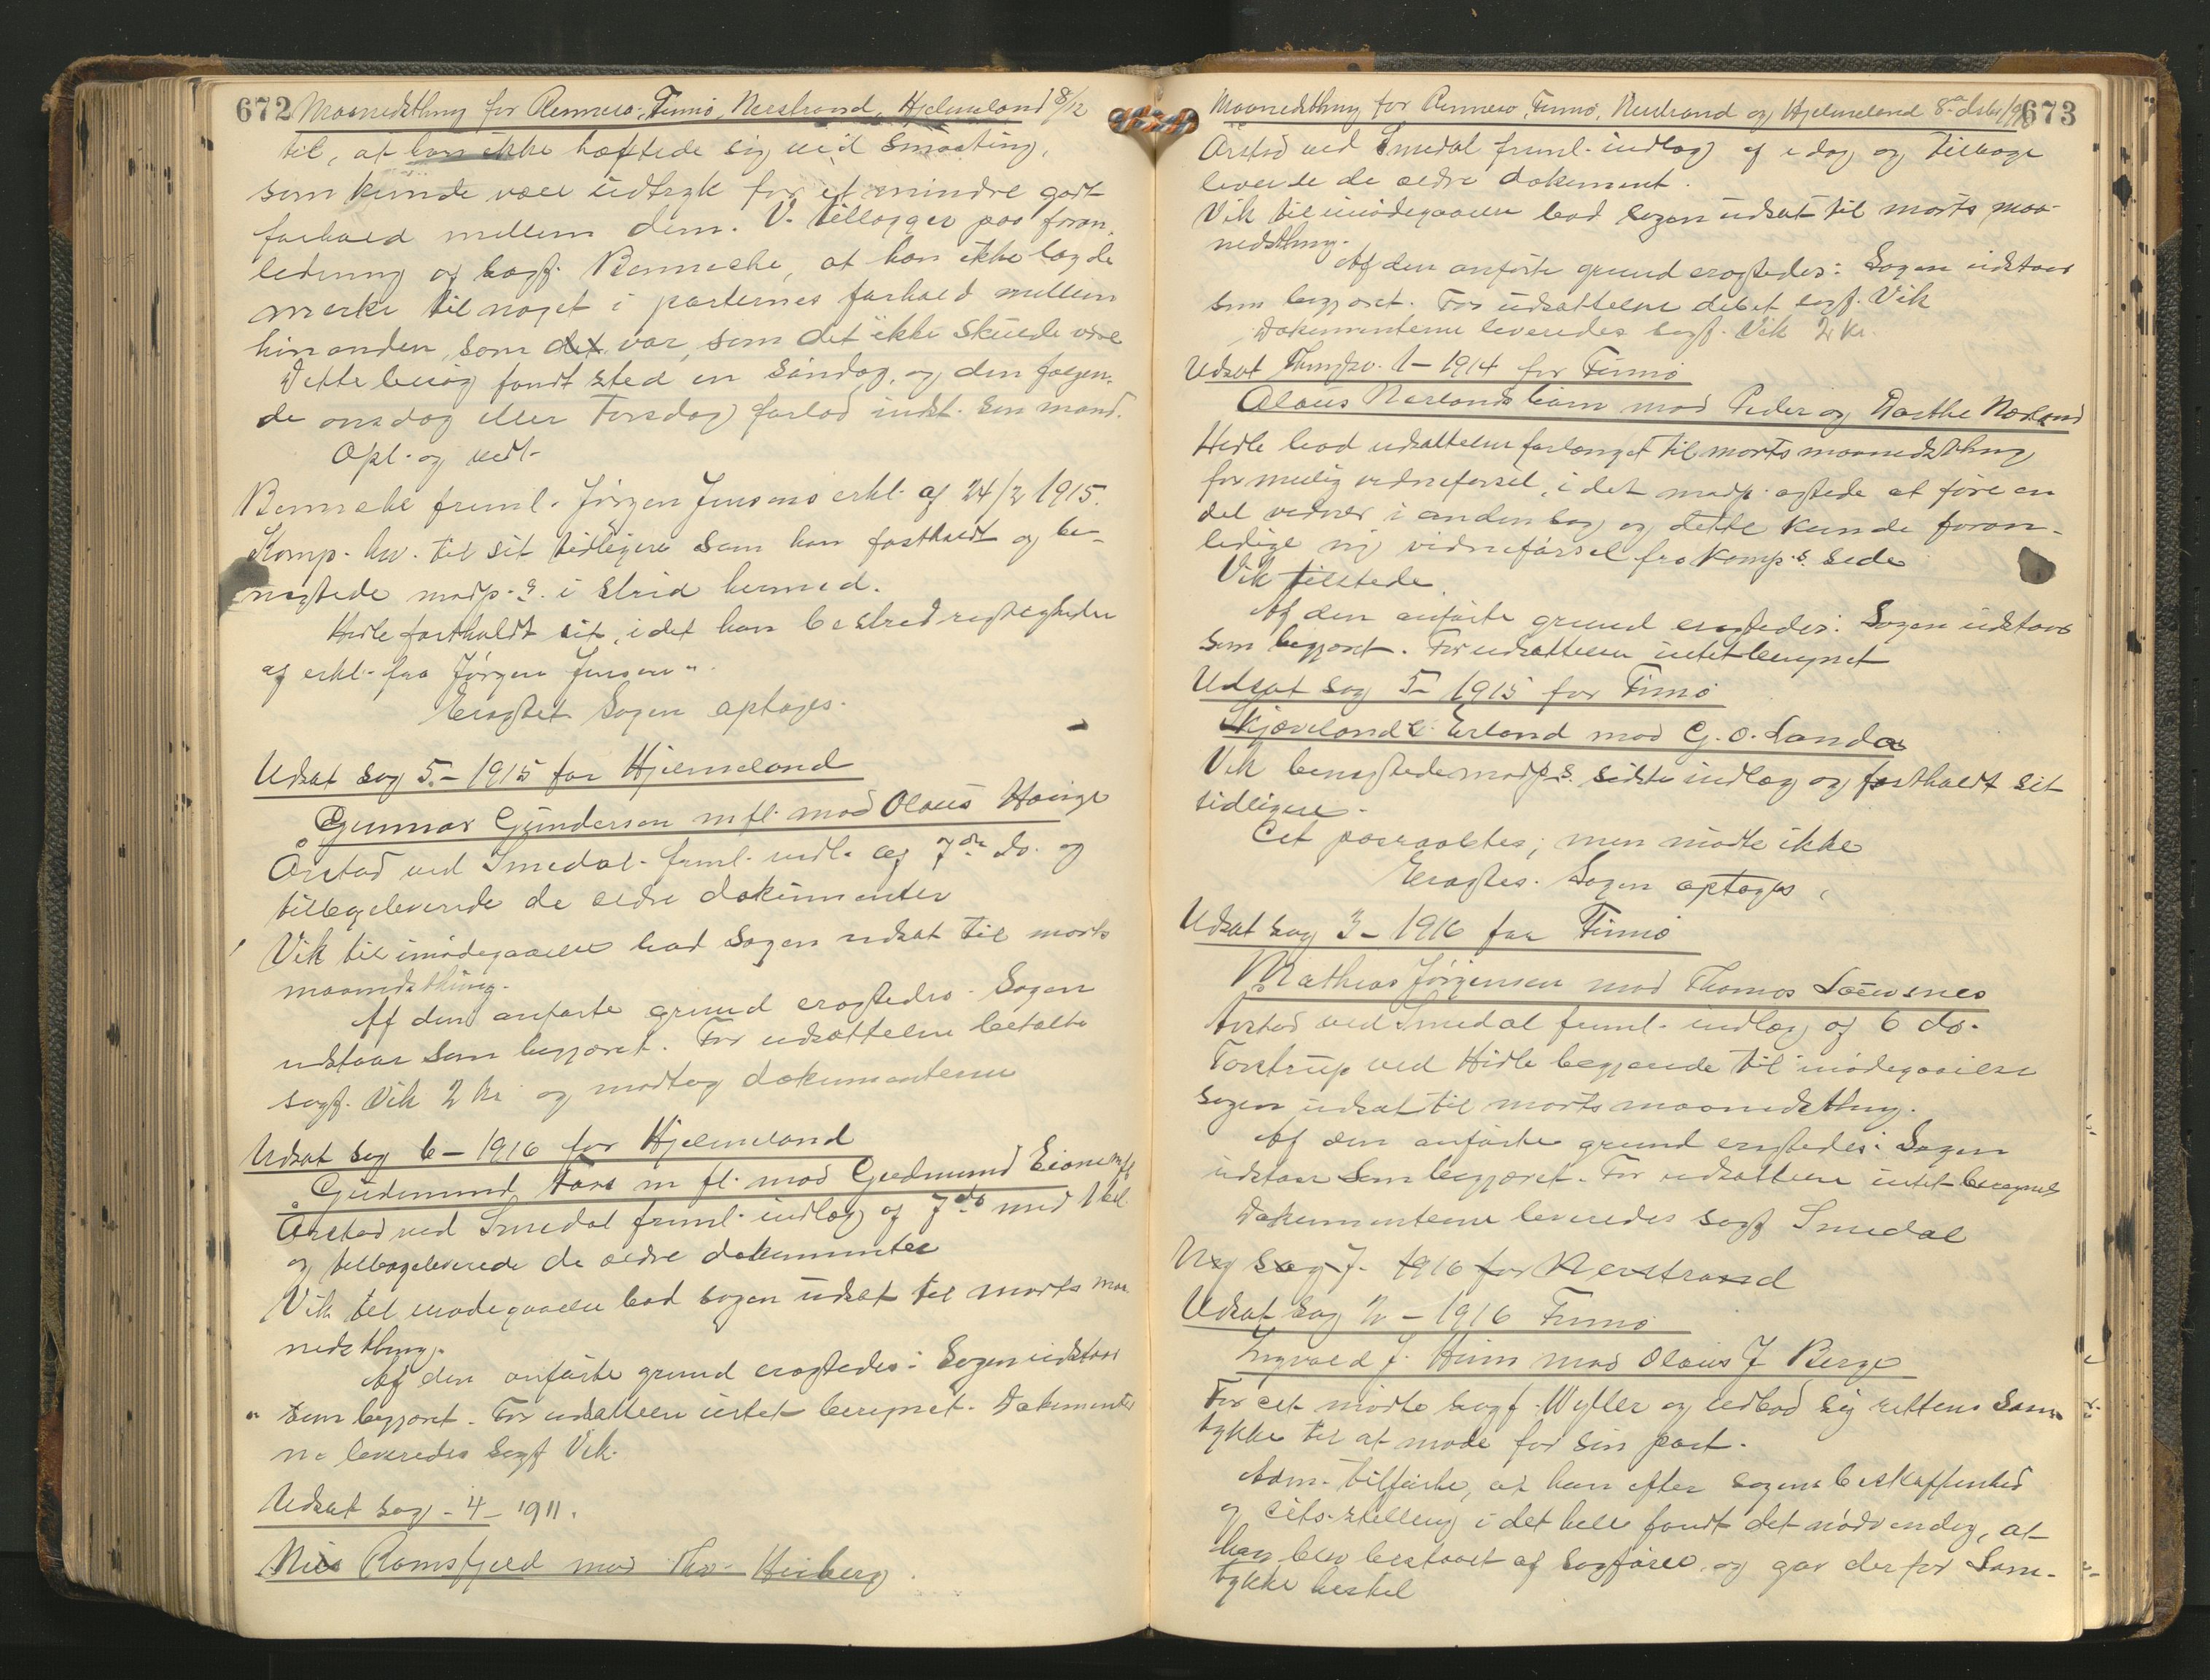 672 Maanedsthing for Rennesø, Finnø, Nerstrand, Hjelmeland 8/12
til, at han ikke hæftede sig ved smaating,
som kunde være udtryk for et mindre godt
forhold mellem dem. V. tillægger paa foran
ledning af sagf. Benneche, at han ikke lagde
merke til noget i parternes forhold mellem
hinanden, som det var, som det ikke skulde være
Dette besøg fandt sted en søndag, og den følgen-
de onsdag eller Torsdag forlod indst. sin mand.
Opl. og vedt.
Benneche freml. Jørgen Jensens erkl. af 24/2 1915.
Komp. hv. til sit tidligere som han fastholdt og be-
nægtede modp.s. i strid hermed.
Hidle fastholdt sit, idet han bestred rigtigheden
af erkl. fra Jørgen Jensen".
Eragtet Sagen optages.
Udsat sag 5 - 1915 for Hjelmeland
Gunnar Gundersen m fl. mod Olaus Hauge
Årstad ved Smedal freml. indl. af 7de ds. og
tilbageleverede de ældre dokumenter
Vik til imødegaaelse bad sagen udsat til marts
maanedsthing.
Af den anførte grund eragtedes. Sagen
udstaar som begjæret. For udsættelsen betalte
sagf. Vik 2 kr og modtog dokumenterne
Udsat sag 6 - 1916 for Hjelmeland
Gudmund m fl. mod Gudmund Eiane m fl
Årstad ved Smedal freml. indlæg af 7 ds med 1 bil.
og tilbageleverede de ældre dokumenter
Vik til imødegaaelse bad sagen udsat til marts maa
nedsthing.
Af den anførte grund eragtedes: Sagen udstaar
som begjæret. For udsættelsen intet beregnet. Dokumenter
ne leveredes sagf Vik.
Udsat sag - 4 - 1911.
Nils Ramsfjeld mod Thv. Heiberg
Maanedsthing for Rennesø, Finnø, Nerstrand og Hjelmeland 8. dsbr 673
Årstad ved Smedal freml. indlæg af i dag og tilbage
leverede de ældre dokument.
Vik til imødegaaelse bad sagen udsat til marts maa-
nedsthing.
Af den anførte grund eragtedes: Sagen udstaar
som begjæret. For udsættelsen debet sagf. Vik
Dokumenterne leveredes sagf. Vik 2 kr.
Udsat 1 - 1914 for Finnø
Olaus Nærlands mod Peder og Dorthe Nærland
Hidle bad udsættelsen forlænget til marts maanedsthing
for mulig vidneførsel, i det modp. agtede at føre en
del vidner i anden sag og dette kunde foran-
ledige ny vidneførsel fra komp.s. side
Vik tilstede.
Af den anførte grund eragtedes: Sagen udstaar
som begjæret. For udsættelsen intet beregnet
Udsat sag 5 - 1915 for Finnø
Skjæveland & Erland mod G. O. Landa
Vik benægtede modp.s. sidste indlæg og fastholdt sit
tidligere.
Cit paaraabtes, men mødte ikke
Eragtes. Sagen optages.
Udsat sag 3 - 1916 for Finnø
Mathias Jørgensen mod Thomas
Årstad ved Smedal freml. indlæg af 6 ds.
Torstrup ved Hidle begjærede til imødegaaelse
sagen udsat til marts maanedsthing.
Af den anførte grund eragtedes: Sagen
udstaar som begjæret. For udsættelsen intet beregnet
Dokumenterne leveredes sagf Smedal
Ny Sag 7. 1916 for Nerstrand
Udsat sag - 1916 Finnø
Ingvald J. mod Olaus J Berge
For cit mødte sagf. Wyller og udbad sig rettens sam
tykke til at møde for sin part.
Adm. tilførte, at han efter sagens beskaffenhed
og cits. stilling i det hele fandt det nødvendig, at
han blev bestaaet af sagfører, og gav derfor Sam-
tykke hertil